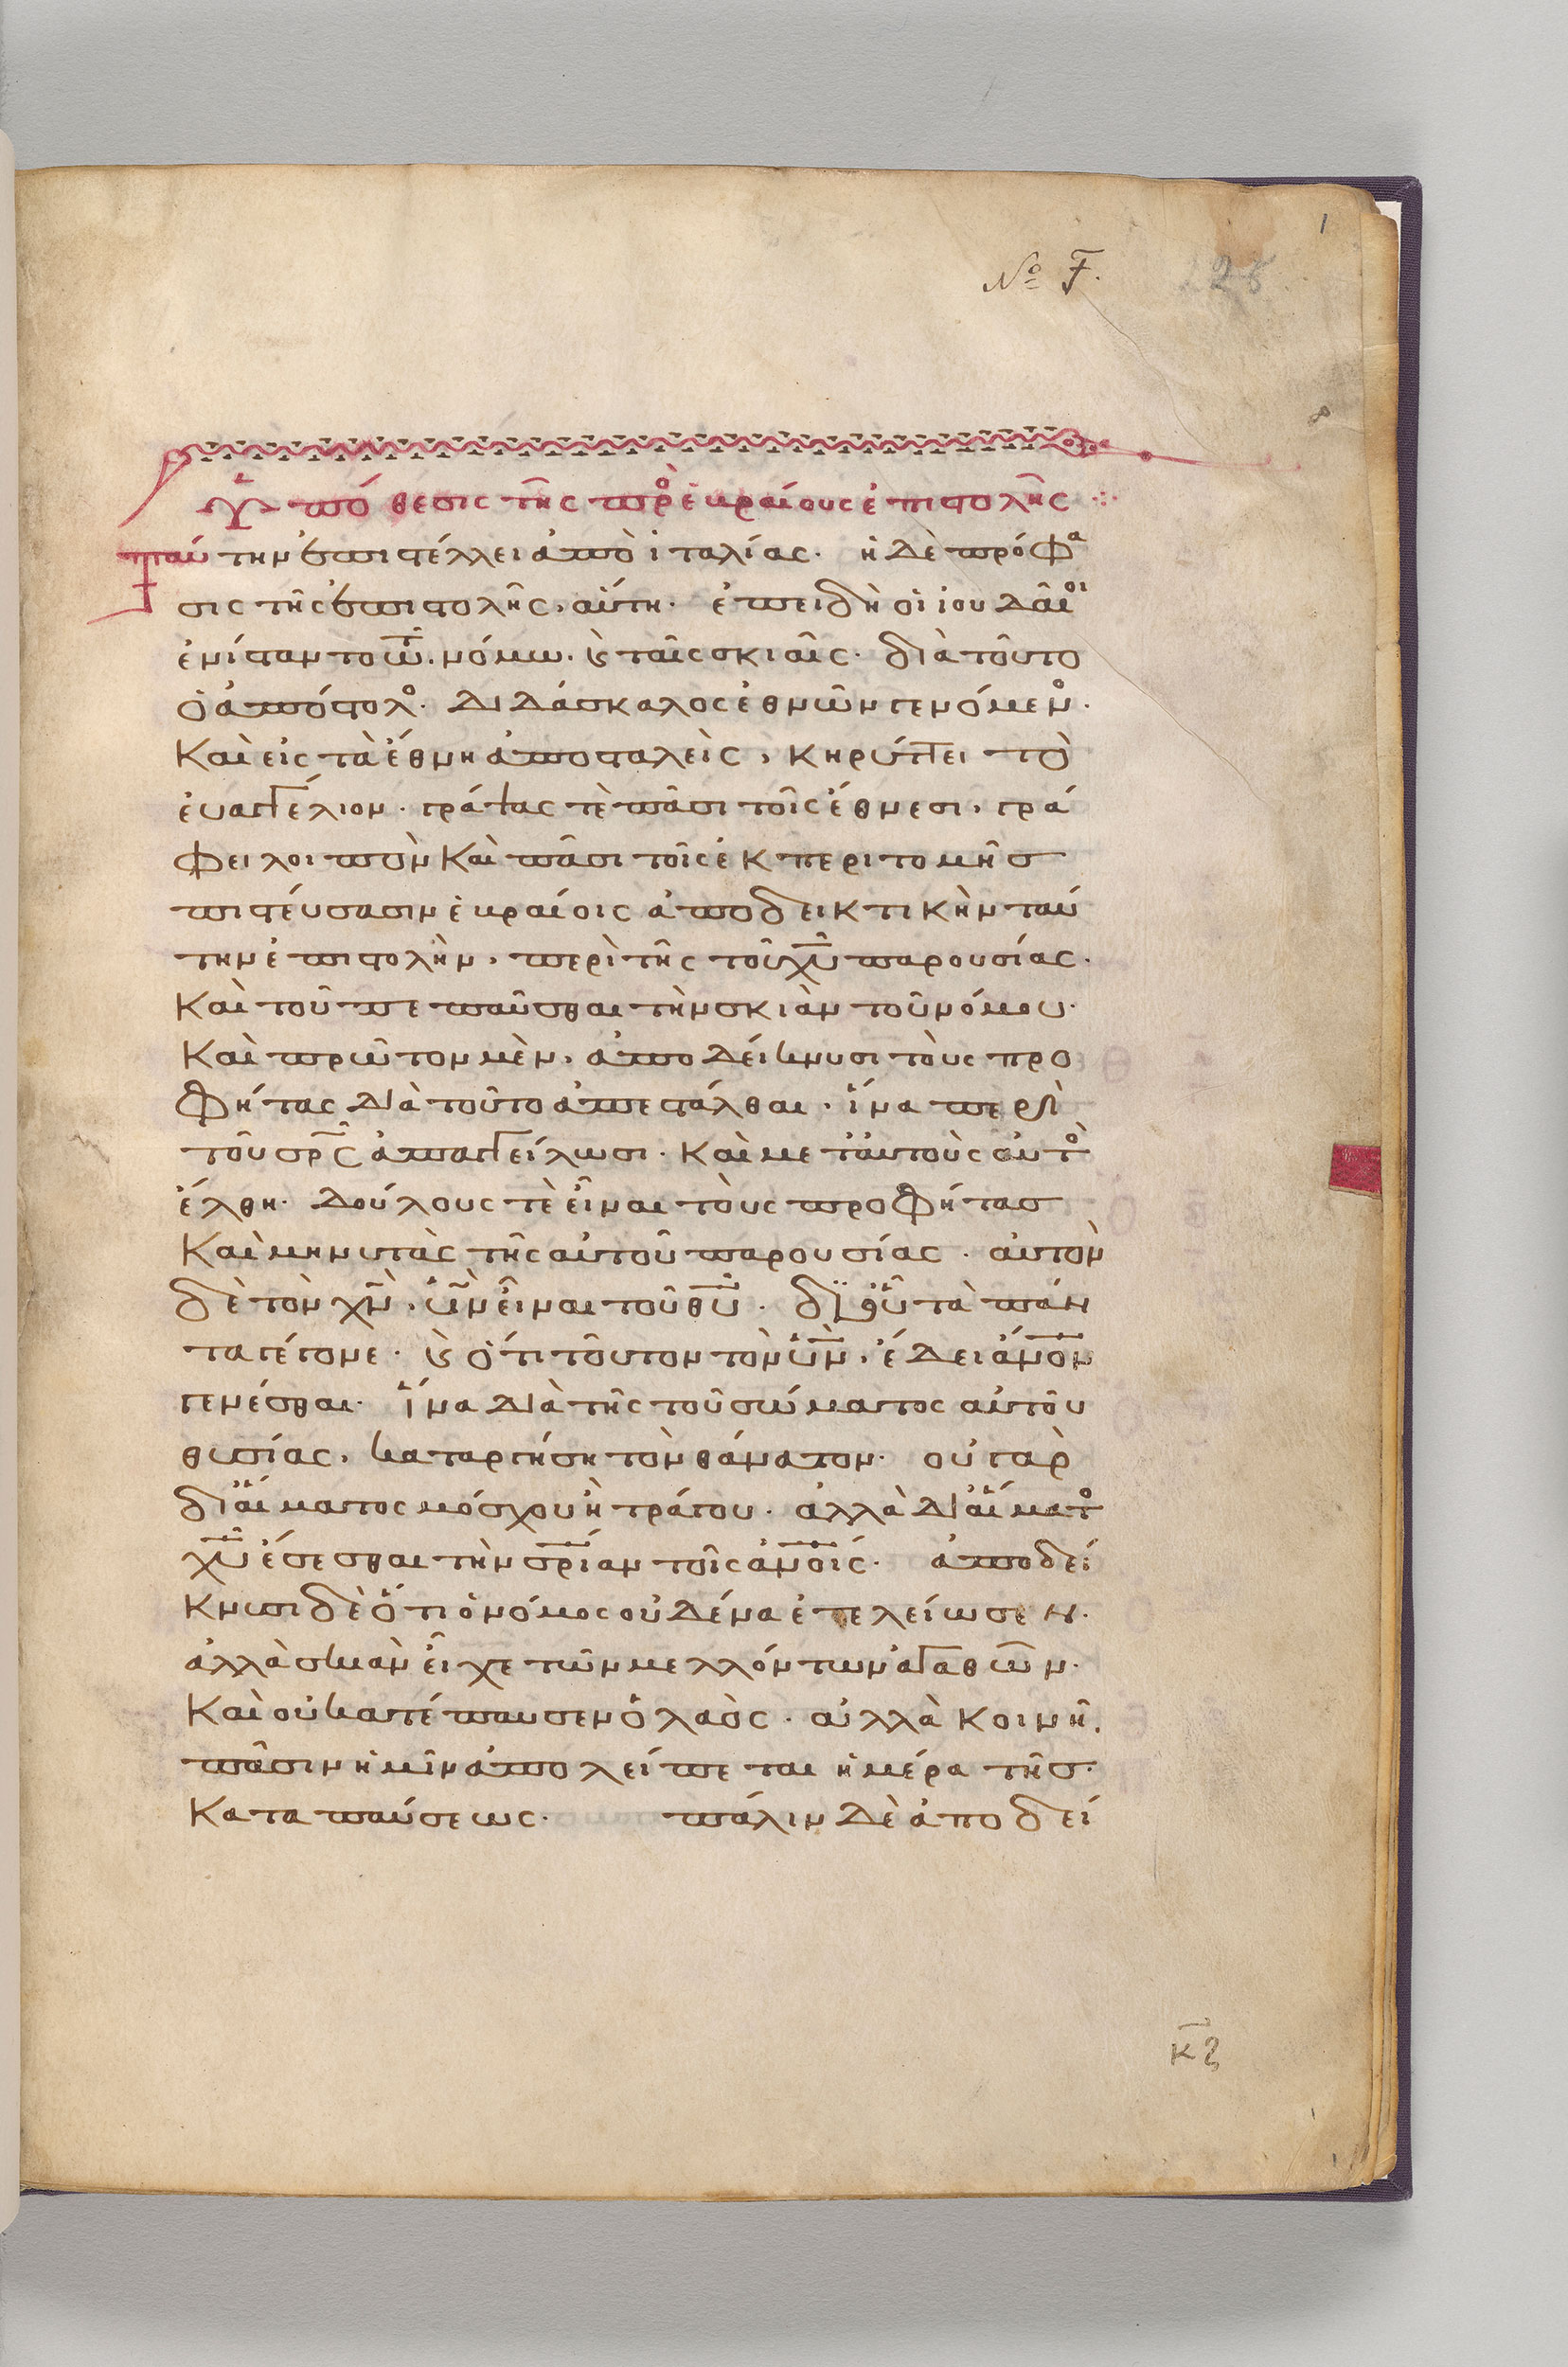 1
Nº F.
Ὑπόθεσις τῆς πρὸ ἑβραίους ἐπιστολῆς
Ταύτην ἐπιστέλλει ἀπὸ ἰταλίας· ἡ δὲ πρόφα
σις τῆς ἐπιστολῆς, αὕτη· ἐπειδὴ οἱ ἰουδαῖοι
ἐνίσταντο τῶ νόμω· καὶ ταῖς σκιαῖς· διὰ τοῦτο
ὁ ἀπόστολο· διδάσκαλος ἐθνῶν γενόμενο·
Καὶ εἰς τὰ ἔθνη ἀποσταλεὶς, κηρύττει τὸ
ἐυαγγέλιον· γράψας τὲ πᾶσι τοῖς ἔθνεσι, γρά
φει λοιπὸν Καὶ πᾶσι τοῖς ἐκ περιτομῆσ
πιστέυσασιν ἑβραίοις ἀποδεικτικὴν ταύ
την ἐπιστολὴν, περὶ τῆς τοῦ χυ παρουσίας·
Καὶ τοῦ πεπαῦσθαι τὴν σκιὰν τοῦ νόμου·
Καὶ πρῶτον μὲν, ἀποδείκνυσι τοὺς προ
φήτας διὰ τοῦτο ἀπεστάλθαι, ἵνα περὶ
τοῦ σρς ἀπαγγείλωσι· Καὶ μετ' ἀυτοὺς αὐτὸ
ἔλθη· δούλους τὲ εἶναι τοὺς προφήτασ
Καὶ μηνυτὰς τῆς αὐτοῦ παρουσίας· αὐτὸν
δὲ τὸν χν, υν εἶναι τοῦ θυ· δι' οὗ τὰ πάν
τα γέγονε· καὶ ὅτι τοῦτον τὸν υν, ἔδει ανον
γενέσθαι· ἵνα διὰ τῆς τοῦ σώματος αὐτοῦ
θυσίας, καταργήση τὸν θάνατον· οὐ γὰρ
δι' αἵματος μόσχου ἢ τράγου· ἀλλὰ δι' αἵματο
χυ ἔσεσθαι τὴν σριαν τοῖς ανοις· ἀποδεί
κνυσι δὲ ὅτι ὁ νόμος οὐδένα ἐτελείωσεν·
ἀλλὰ σκιὰν εἶχε τῶν μελλόντων ἀγαθῶν·
Καὶ οὐ κατέπαυσεν ὁ λαὸς· ἀλλὰ κοινῆ
πᾶσιν ἡμῖν ἀπολείπεται ἡμέρα τῆσ
Καταπαύσεως· πάλιν δὲ ἀποδεί
κζ